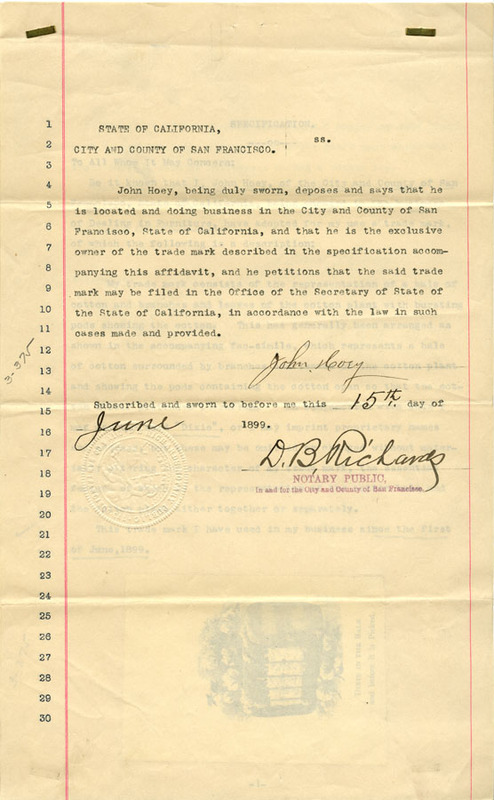 1
2
3
4
5
6
7
8
9
10
11
12
13
14
15
16
17
18
19
20
21
22
23
24
25
26
27
28
29
30
STATE OF CALIFORNIA,
ss.
CITY AND COUNTY OF SAN FRANCISCO.
John Hoey, being duly sworn, deposes and says that he
is located and doing business in the City and County of San
Francisco, State of California, and that he is the exclusive
owner of the trade mark described in the specification accom-
panying this affidavit, and he petitions that the said trade
mark may be filed in the Office of the Secretary of State of
the State of California, in accordance with the law in such
cases made and provided.
3-375
John Hoey
Subscribed and sworn to before me this 15th. day of
June 1899.
D. B. Richards
NOTARY PUBLIC,
In and for the City and County of San Francisco.
SPECIFICATION.
To All Whom It May Concern:
This trade mark I have used in my business since the first
of June, 1899.